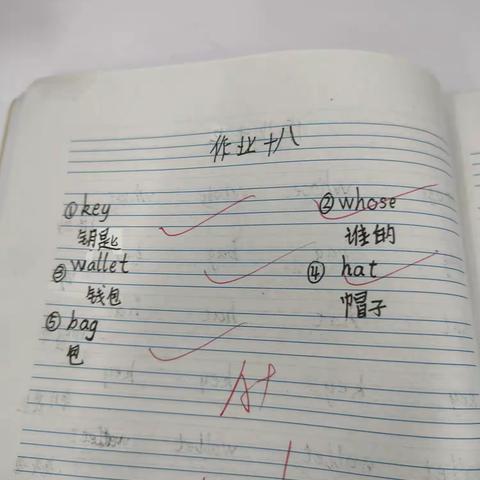 作业十八
①key ②whose
钥匙 谁的
③wallet ④hat
钱包 帽子
⑤bag
包
A+